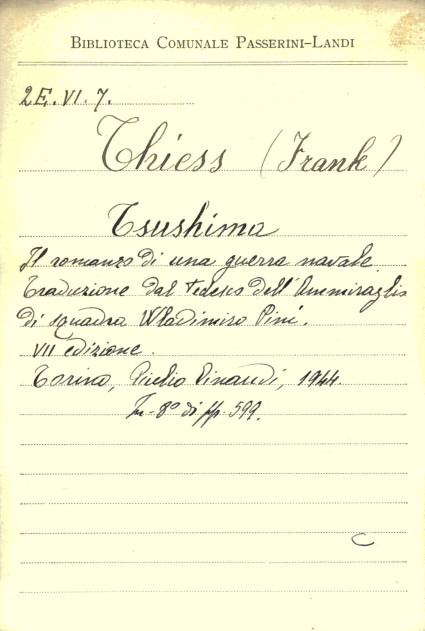 BIBLIOTECA COMUNALE PASSERINI-LANDI
2E.VI.7.
Thiess (Frank)
Tsushima
Il romanzo di una guerra navale.
Traduzione dal tedesco dell'Ammiraglio
di squadra Wladimiro Pini.
VII edizione.
Torino, Giulio Einaudi, 1944.
In-8° di pp. 599.
C